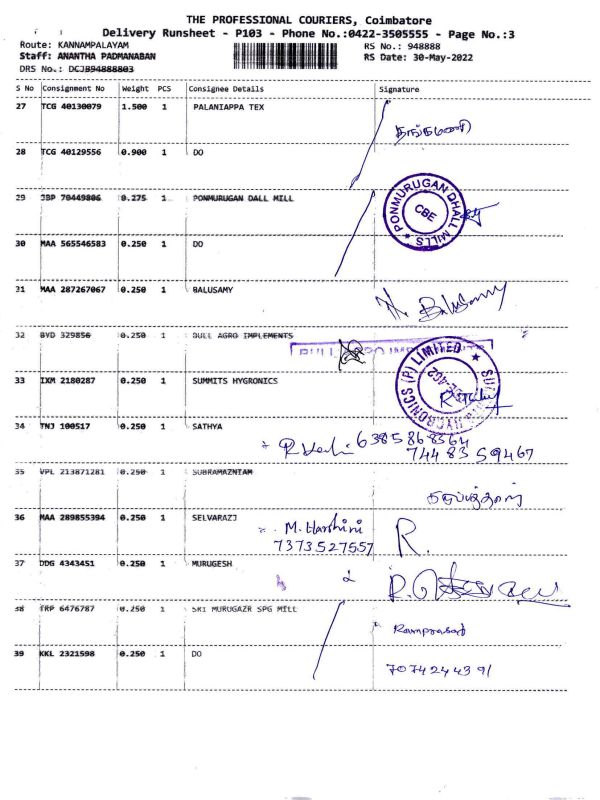 THE PROFESSIONAL COURIERS, Coimbatore
Delivery Runsheet - P103 - Phone No.:0422-3505555 - Page No.:3
Route: KANNAMPALAYAM RS No.: 948888
Staff: ANANTHA PADMANABAN RS Date: 30-May-2022
DRS No.: DCJB94888803
S No Consignment No Weight PCS Consignee Details Signature
27 TCG 40130079 1.500 1 PALANIAPPA TEX
தங்கமணி
28 TCG 40129556 0.900 1 DO
29 JBP 70449806 0.275 1 PONMURUGAN DALL MILL
PONMURUGAN DHALL MILLS
CBE
30 MAA 565546583 0.250 1 DO
31 MAA 287267067 0.250 1 BALUSAMY
Balusamy
32 BYD 329856 0.250 1 BULL AGRO IMPLEMENTS
33 IXM 2180287 0.250 1 SUMMITS HYGRONICS
HYGRONICS (P) LIMITED
34 TNJ 100517 0.250 1 SATHYA
6385868564
7448359467
35 VPL 213871281 0.250 1 SUBRAMAZNIAM
36 MAA 289855394 0.250 1 SELVARAZJ
M. Harshini R.
7373527557
37 DDG 4343451 0.250 1 MURUGESH
38 TRP 6476787 0.250 1 SRI MURUGAZR SPG MILL
Ramprasad
39 KKL 2321598 0.250 1 DO
7074244391